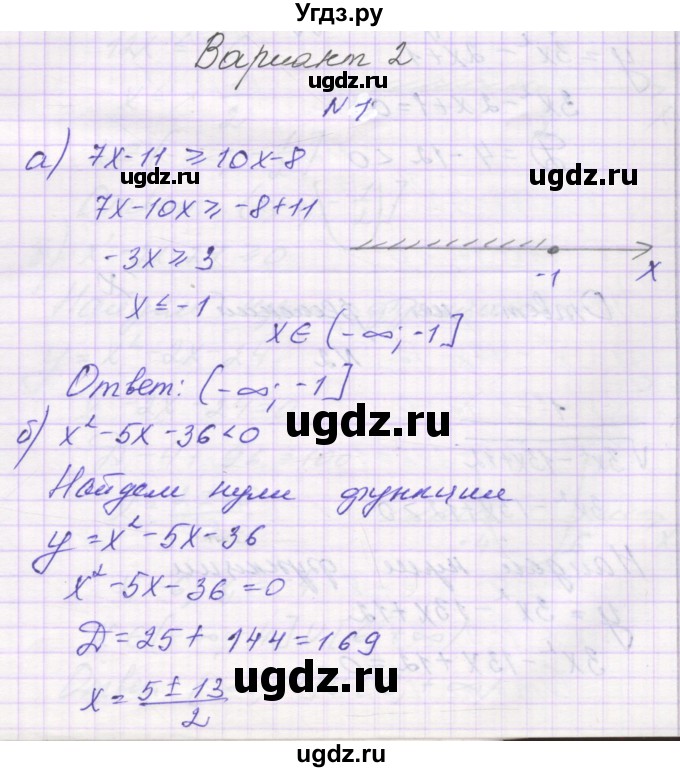 Угдз.ру
Вариант 2
ugdz.ru
N 1
а) 7x-11 ≥ 10x-8
ugdz.ru
ugdz.ru
7x-10x ≥ -8+11
-3x ≥ 3
-1 x
x ≤ -1
x ∈ (-∞; -1]
Ответ: (-∞; -1]
ugdz.ru
ugdz.ru
б) x² - 5x - 36 < 0
Найдем нули функции
y = x² - 5x - 36
x² - 5x - 36 = 0
Д = 25 + 144 = 169
ugdz.ru
ugdz.ru
x = (5 ± 13)/2
ugdz.ru